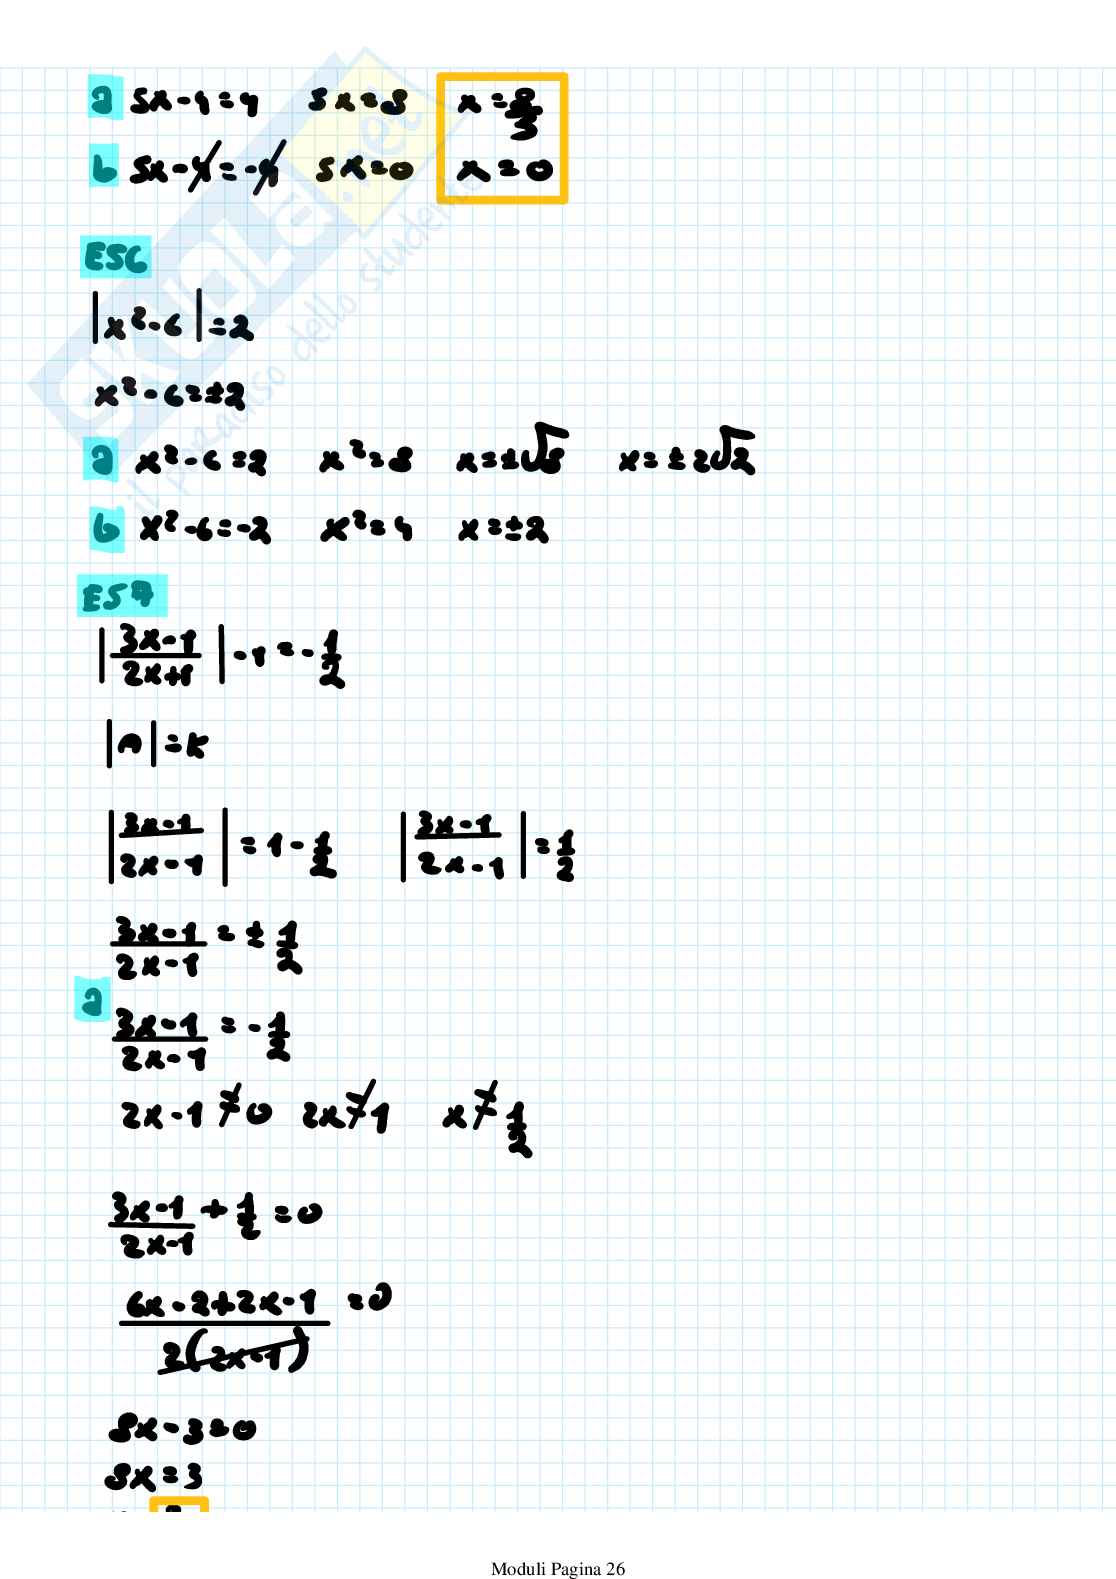 a 5x-4=4 5x=8 x=8/5
b 5x-4=-4 5x=0 x=0
SKUOLA.net
il paradiso dello studente
ES6
|x²-6|=2
x²-6=±2
a x²-6=2 x²=8 x=±√8 x=±2√2
b x²-6=-2 x²=4 x=±2
ES7
|(3x-1)/(2x+1)|-1=-1/2
|n|=k
|(3x-1)/(2x-1)|=1-1/2 |(3x-1)/(2x-1)|=1/2
(3x-1)/(2x-1)=±1/2
a
(3x-1)/(2x-1)=-1/2
2x-1≠0 2x≠1 x≠1/2
(3x-1)/(2x-1)+1/2=0
(6x-2+2x-1)/(2(2x-1))=0
8x-3=0
8x=3
Moduli Pagina 26